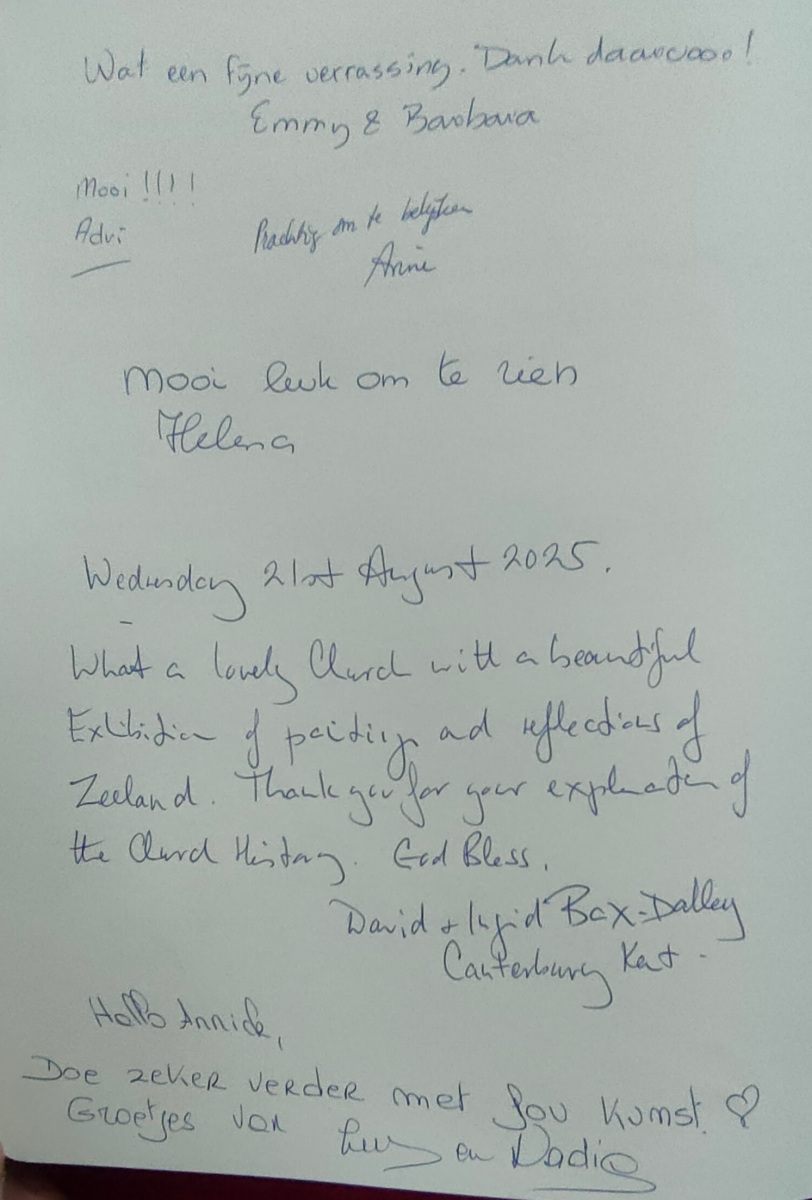 Wat een fijne verrassing. Dank daarvoor!
Emmy & Barbara
Mooi !!!!
Advi
Prachtig om te bekijken
Anne
Mooi leuk om te zien
Helena
Wednesday 21st August 2025.
What a lovely Church with a beautiful
Exhibition of painting and reflections of
Zeeland. Thank you for your explanation of
the Church History. God Bless.
David + Ingrid Bax-Dalley
Canterbury Kent.
Hallo Annick,
Doe zeker verder met jou kunst ♡
Groetjes van en Nadia